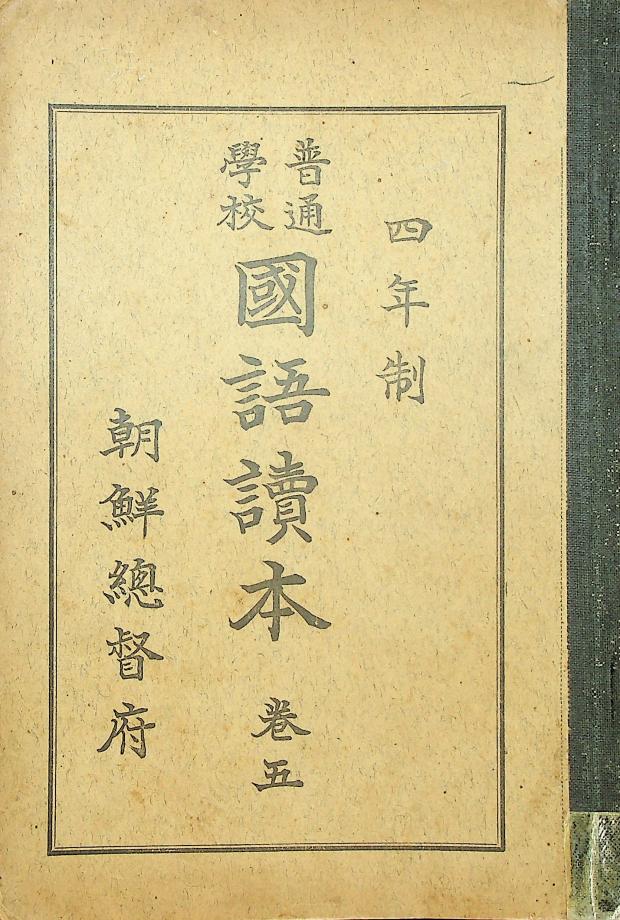 四年制
普通
學校
國語讀本 卷五
朝鮮總督府